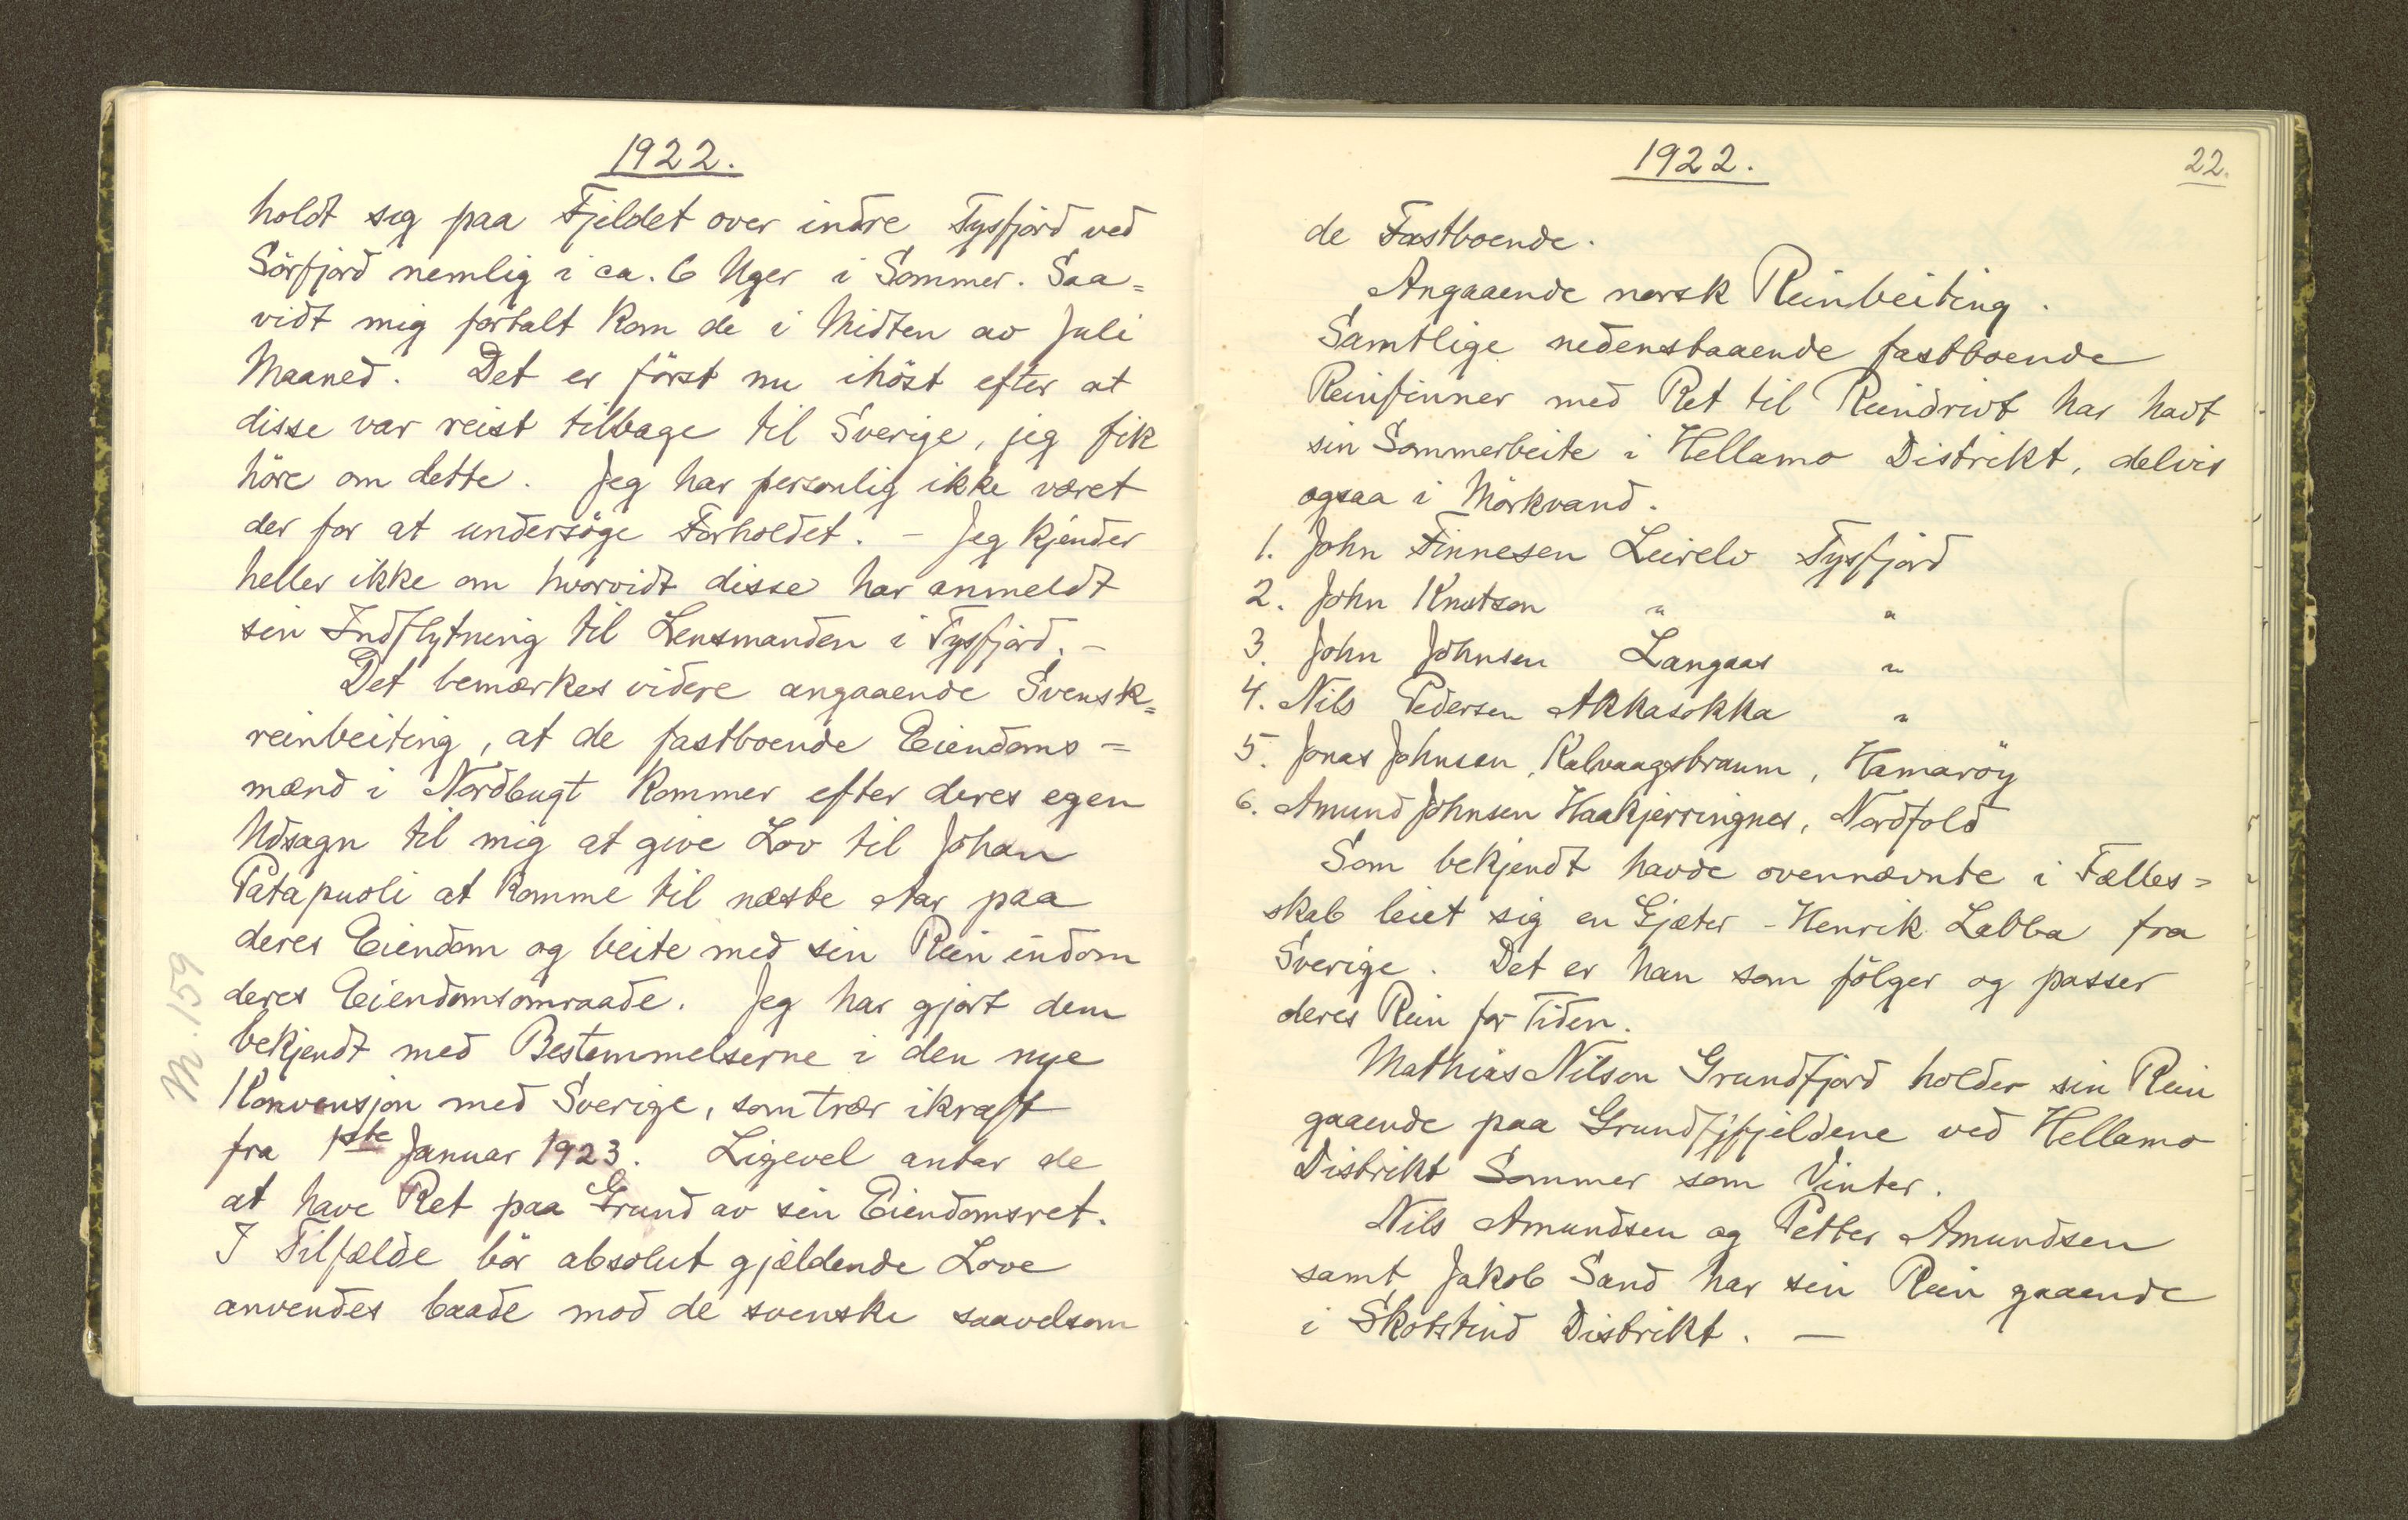 1922.
holdt sig paa Fjeldet over indre Tysfjord ved
Sörfjord nemlig i ca. 6 Uger i Sommer. Saa=
vidt mig fortalt kom de i Midten av Juli
Maaned. Det er först nu ihöst efter at
disse var reist tilbage til Sverige, jeg fik
höre om dette. Jeg har personlig ikke været
der for at undersöge Forholdet. - Jeg kjender
heller ikke om hvorvidt disse har anmeldt
sin Indflytning til Lensmanden i Tysfjord. -
Det bemærkes videre angaaende Svensk=
reinbeiting, at de fastboende Eiendoms=
mænd i Nordbugt kommer efter deres egen
Udsagn til mig at give Lov til Johan
Patapuoli at komme til næste Aar paa
deres Eiendom og beite med sin Rein indom
deres Eiendomsomraade. Jeg har gjort dem
bekjendt med Bestemmelserne i den nye
Konvensjon med Sverige, som trær ikraft
fra 1ste Januar 1923. Ligevel antar de
at have Ret paa Grund av sin Eiendomsret.
I Tilfælde bör absolut gjældende Love
anvendes baade mod de svenske saavelsom
M. 159
1922.
22.
de Fastboende.
Angaaende norsk Reinbeiting.
Samtlige nedenstaaende fastboende
Reinfinner med Ret til Reindrivt har havt
sin Sommerbeite i Hellamo Distrikt, delvis
ogsaa i Mörkvand.
1. John Finnesen Leirelv Tysfjord
2. John Knutsen " "
3. John Johnsen Langaas "
4. Nils Pedersen Akkasokka "
5. Jonas Johnsen, Kalvaagsbraum, Hamaröy
6. Amund Johnsen Haakjerringnes, Nordfold
Som bekjendt havde ovennævnte i Fælles=
skab leiet sig en Gjæter - Henrik Labba fra
Sverige. Det er han som fölger og passer
deres Rein for Tiden.
Mathias Nilsen Grundfjord holder sin Rein
gaaende paa Grundfjfjeldene ved Hellamo
Distrikt Sommer som Vinter.
Nils Amundsen og Petter Amundsen
samt Jakob Sand har sin Rein gaaende
i Skotstind Distrikt. -